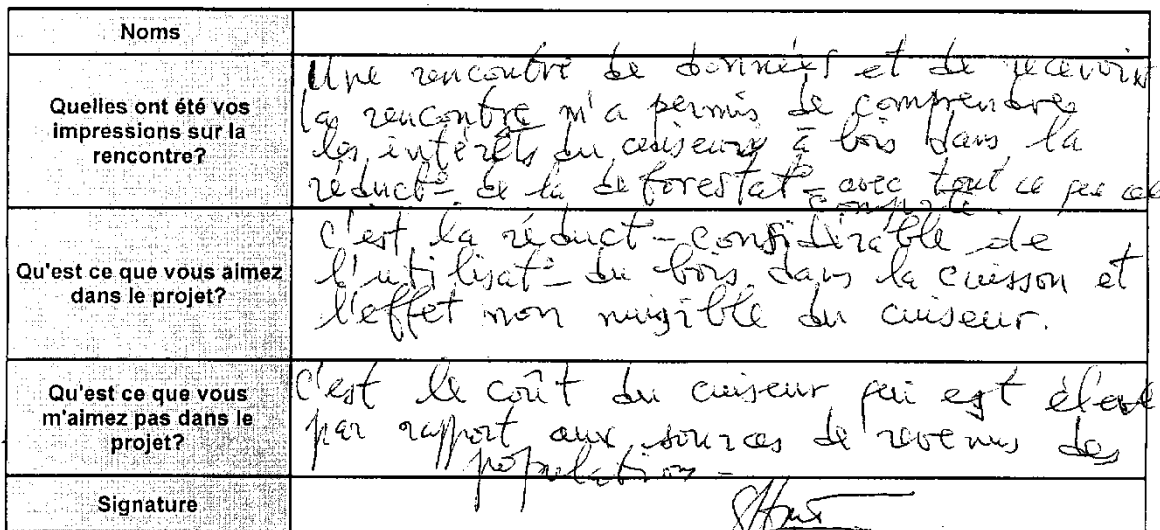 Noms
Quelles ont été vos
impressions sur la
rencontre?
Une rencontre de données et de recevoir
la rencontre m'a permis de comprendre
les intérêts du cuiseurs à bois dans la
réduct° de la deforestat° avec tout ce que cela
comporte.
Qu'est ce que vous aimez
dans le projet?
C'est la réduct° considérable de
l'utilisat° du bois dans la cuisson et
l'effet non nuigible du cuiseur.
Qu'est ce que vous
m'aimez pas dans le
projet?
C'est le coût du cuiseur qui est élevé
par rapport aux sources de revenus des
population
Signature